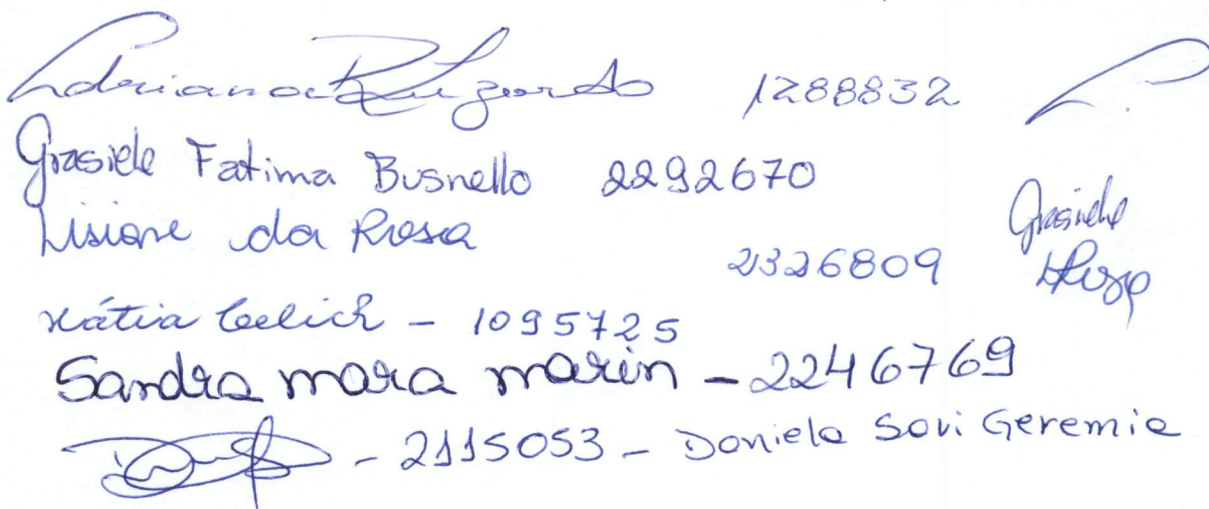 Adriana 1288832
Grasiele Fatima Busnello 2292670
Lisiane da Rosa 2326809
Grasiele
Kátia Celich - 1095725
Sandra mara marin - 22446769
- 2115053 - Daniela Savi Geremia